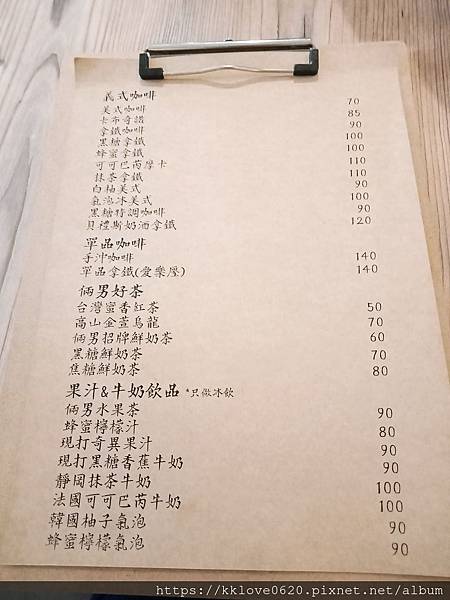 義式咖啡
美式咖啡 70
卡布奇諾 85
拿鐵咖啡 90
黑糖拿鐵 100
蜂蜜拿鐵 100
可可巴芮摩卡 110
抹茶拿鐵 110
白柚美式 90
氣泡冰美式 100
黑糖特調咖啡 90
貝禮斯奶酒拿鐵 120
單品咖啡
手沖咖啡 140
單品拿鐵(愛樂壓) 140
倆男好茶
台灣蜜香紅茶 50
高山金萱烏龍 70
倆男招牌鮮奶茶 60
黑糖鮮奶茶 70
焦糖鮮奶茶 80
果汁&牛奶飲品 *只做冰飲
倆男水果茶 90
蜂蜜檸檬汁 80
現打奇異果汁 90
現打黑糖香蕉牛奶 90
靜岡抹茶牛奶 100
法國可可巴芮牛奶 100
韓國柚子氣泡 90
蜂蜜檸檬氣泡 90
https://kklove0620.pixnet.net/album